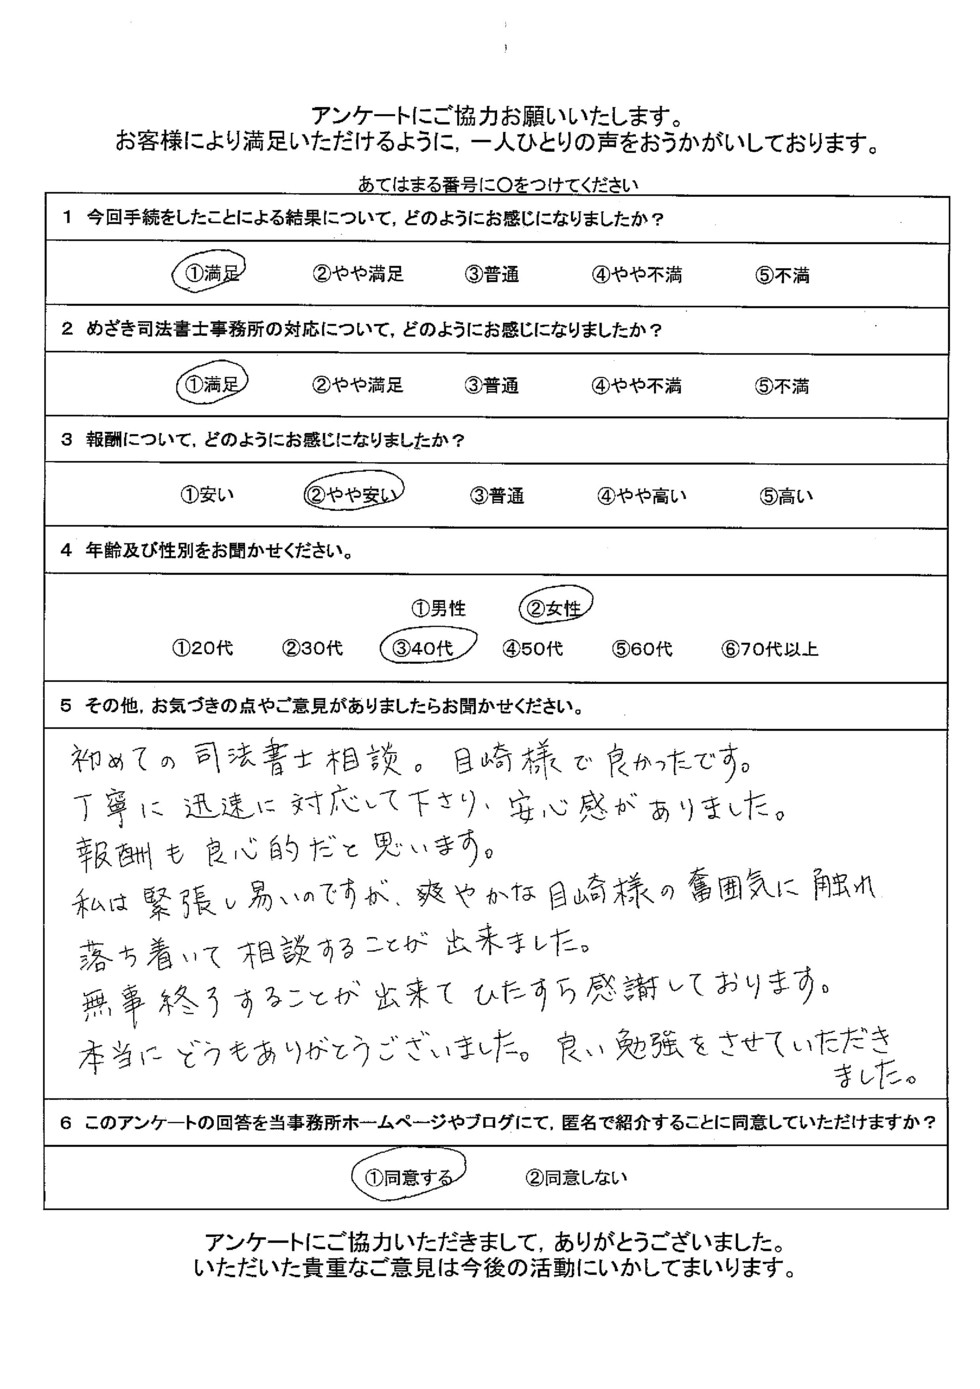 アンケートにご協力お願いいたします。
お客様により満足いただけるように，一人ひとりの声をおうかがいしております。
あてはまる番号に〇をつけてください
1 今回手続をしたことによる結果について，どのようにお感じになりましたか？
①満足 ②やや満足 ③普通 ④やや不満 ⑤不満
2 めざき司法書士事務所の対応について，どのようにお感じになりましたか？
①満足 ②やや満足 ③普通 ④やや不満 ⑤不満
3 報酬について，どのようにお感じになりましたか？
①安い ②やや安い ③普通 ④やや高い ⑤高い
4 年齢及び性別をお聞かせください。
①男性 ②女性
①20代 ②30代 ③40代 ④50代 ⑤60代 ⑥70代以上
5 その他，お気づきの点やご意見がありましたらお聞かせください。
初めての司法書士相談。目崎様で良かったです。
丁寧に迅速に対応して下さり、安心感がありました。
報酬も良心的だと思います。
私は緊張し易いのですが、爽やかな目崎様の奮囲気に触れ
落ち着いて相談することが出来ました。
無事終了することが出来てひたすら感謝しております。
本当にどうもありがとうございました。良い勉強をさせていただき
ました。
6 このアンケートの回答を当事務所ホームページやブログにて，匿名で紹介することに同意していただけますか？
①同意する ②同意しない
アンケートにご協力いただきまして，ありがとうございました。
いただいた貴重なご意見は今後の活動にいかしてまいります。